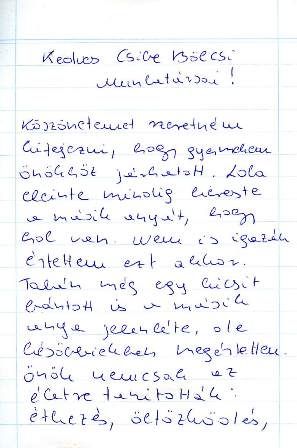 Kedves Csibe Bölcsi
Munkatársai!
Köszönetemet szeretném
kifejezni, hogy gyermekem
önökhöz járhatott. Lola
eleinte mindig kereste
a másik anyát, hogy
hol van. Nem is igazán
értettem ezt akkor.
Talán még egy kicsit
bántott is a másik
anya jelenléte, de
későbbiekben megértettem.
Önök nemcsak az
életre tanították:
étkezés, öltözködés,